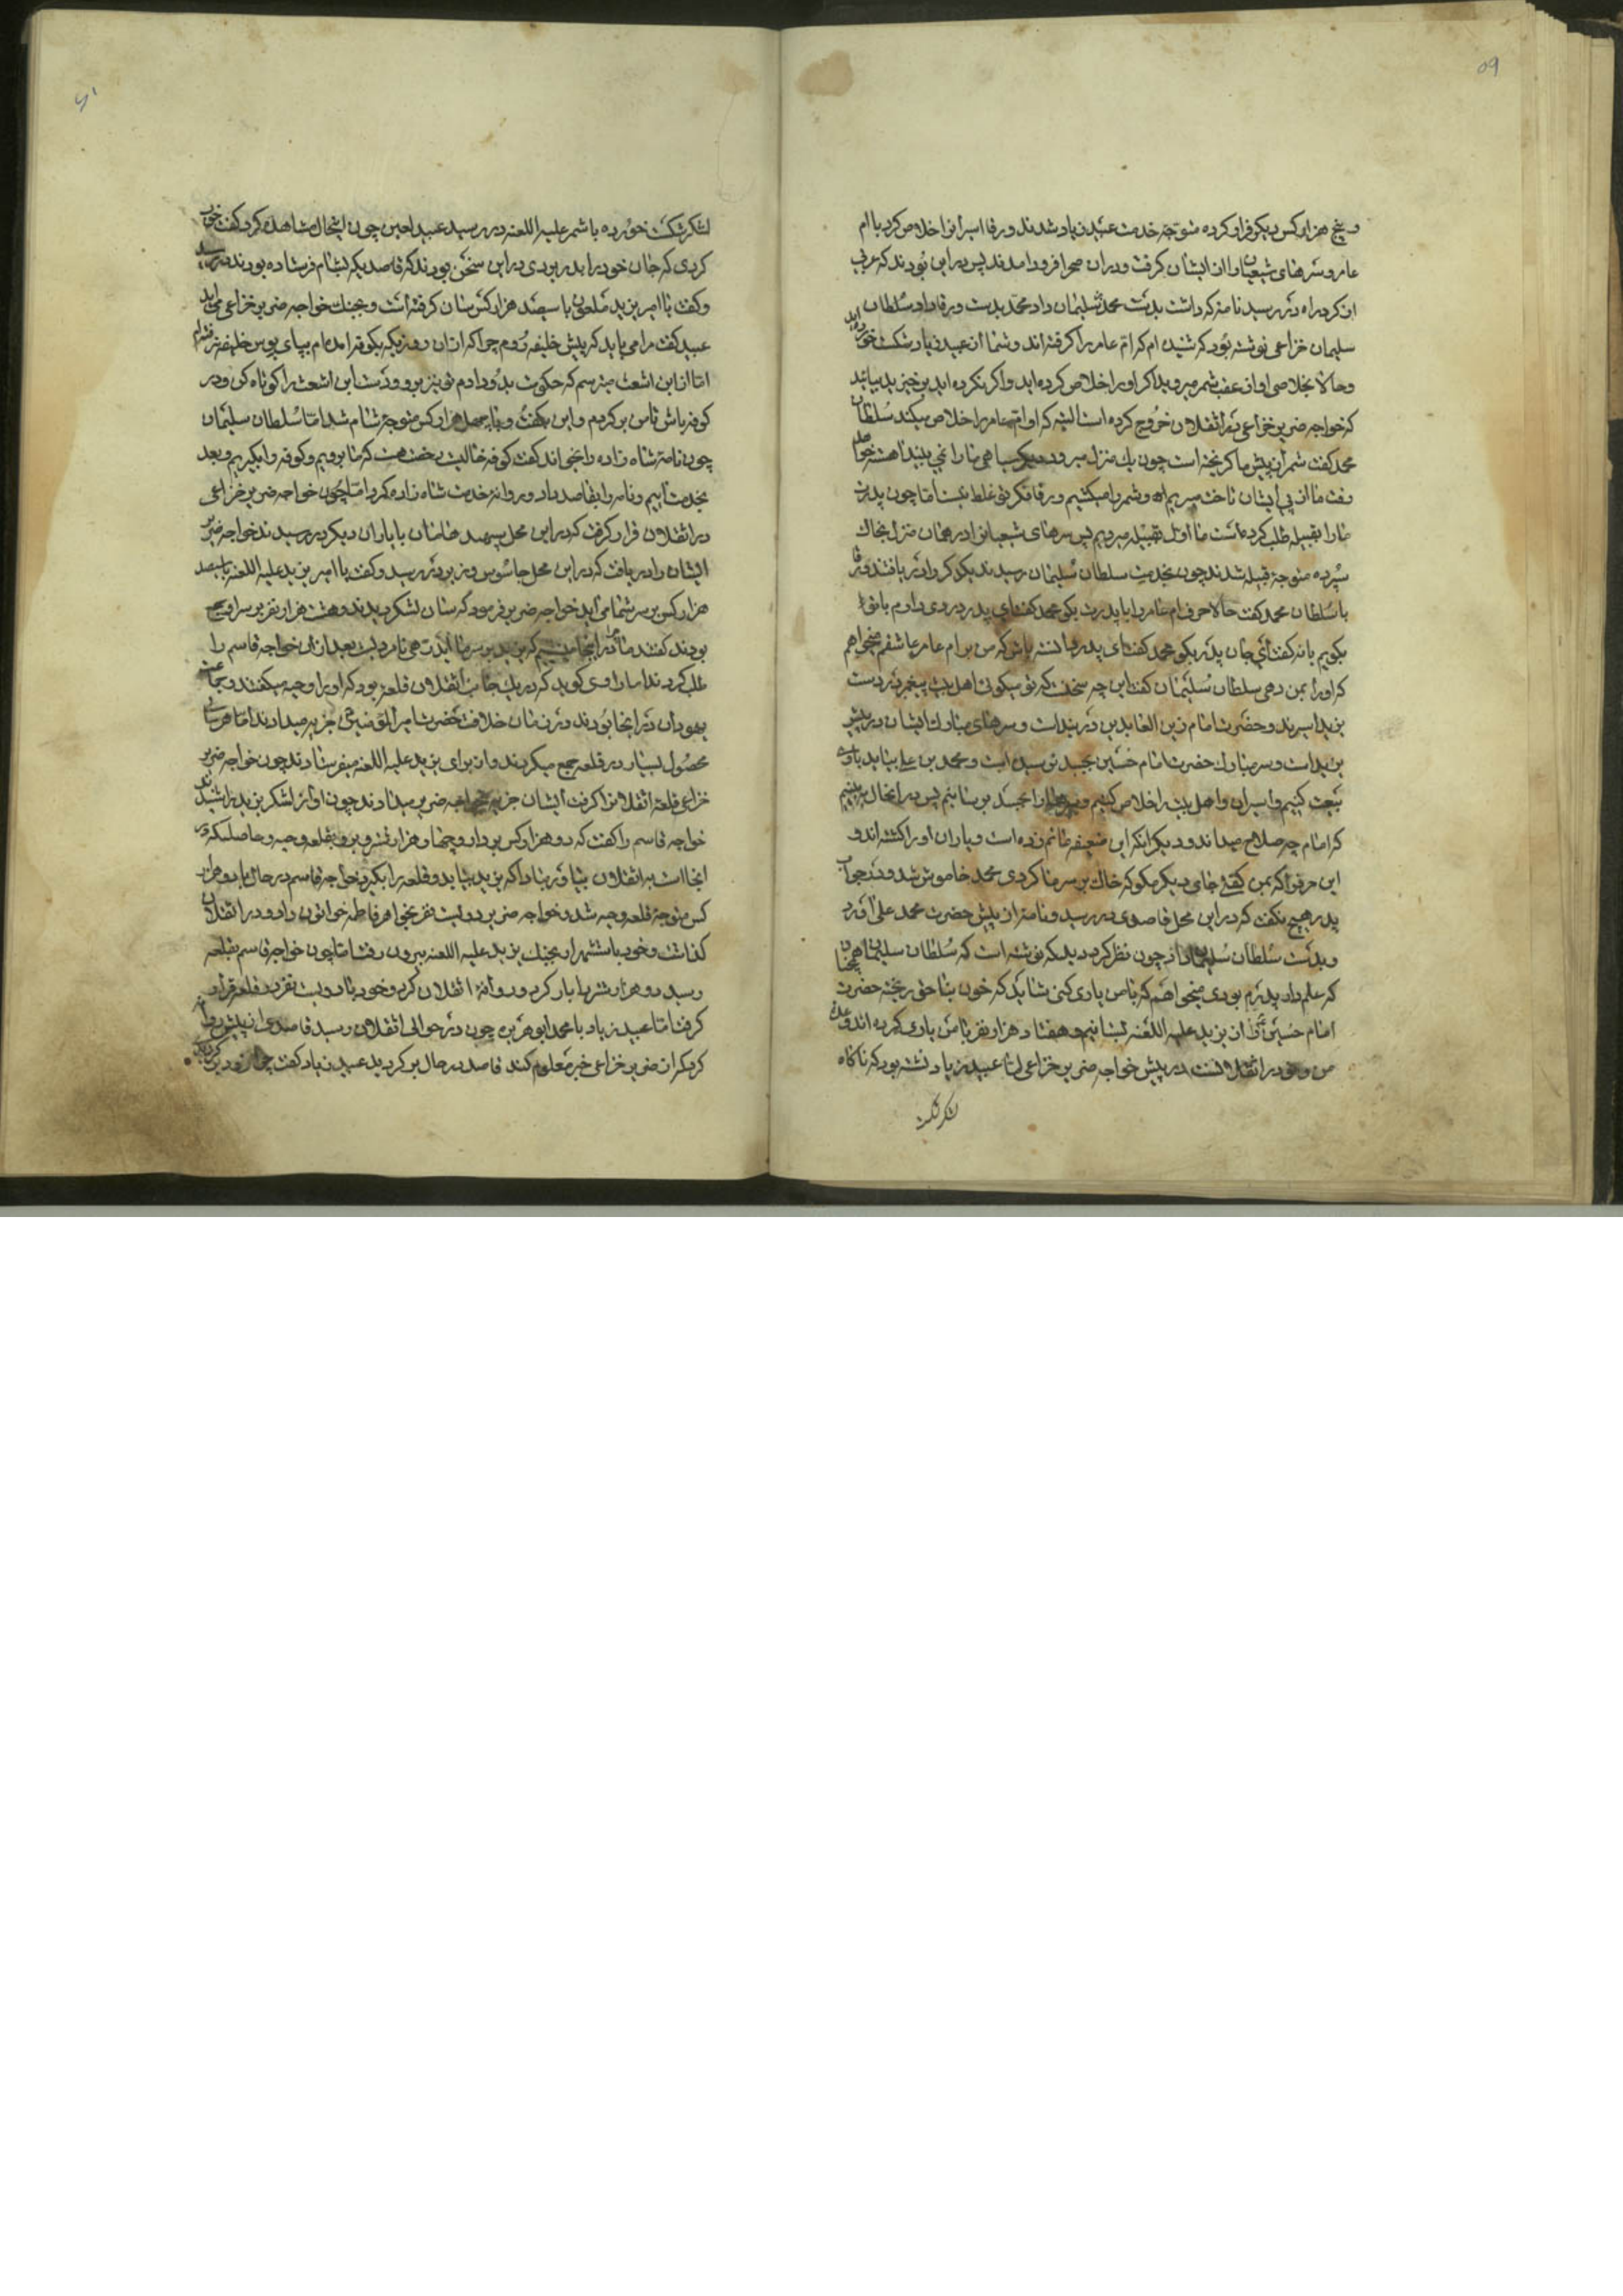 ۵۹
و پنج هزار کس دیکر فرار کرده متوجه خدمت عبید زیاد شدند ورقا اسیرانرا خلاص کرد با ام
عامر و سرهای شیعیانرا از ایشان کرفت و در ان صحرا فرود امدند پس در این بودند که عربی
از کرد راه در رسید نامهٔ که داشت بدست محمد سلیمان داد محمد بدست ورقا داد سلطان
سلیمان خزاعی نوشته بود که شنیده ام که ام عامر را کرفته اند و شما از عبید زیاد شکست خورده اید
و حالا بخلاصی او از عقب شمر میروید اکر او را خلاص کرده اید و اکر نکرده اید برخیزید بیائید
که خواجه ضریر خزاعی در اثقلان خروج کرده است البته که او ام عامر را خلاص میکند سلطان
محمد کفت شمر از پیش ما کریخته است چون یک منزل میرود
رفت ما از پی ایشان تاخت میبریم و شمر را میکشیم ورقا فکر تو غلط نیست اما چون پدرت
ما را بقبیله طلب کرده است ما اول بقبیله میرویم پس سرهای شیعیانرا در همان منزل بخاک
سپرده متوجهٔ قبیله شدند چون بخدمت سلطان سلیمان رسیدند یکدیکر را در یافتند ورقا
با سلطان محمد کفت حالا حرف ام عامر را با پدرت بکو محمد کفت ای پدر در روی دارم با تو
بکویم یا نه کفت ای جان پدر بکو محمد کفت ای پدر دانسته باش که من بر ام عامر عاشقم میخواهم
که او را بمن دهی سلطان سلیمان کفت این چه سخنست که تو میکوئی اهل بیت پیغمبر در دست
یزید اسیرند و حضرت امام زین العابدین در بند است و سرهای مبارک ایشان در پیش
یزید است و سر مبارک حضرت امام حسین بجسد نرسیده است و محمد بن علی بیاید با وی
بیعت کنیم و اسیران و اهل بیت را خلاص کنیم و سرها را بجسد برسانیم پس در انحال ببینیم
که امام چه صلاح میداند و دیکر انکه این ضعیفه ماتم زده است و یاران او را کشته اند و
این حرفرا که بمن کفتی جای دیکر مکو که خاک بر سر ما کردی محمد خاموش شد و در جواب
پدر هیچ نکفت که در این محل قاصدی در رسید و نامه از پیش حضرت محمد علی آورد
و بدست سلطان سلیمان داد چون نظر کرد دید که نوشته است که سلطان سلیمان همچنان
که علم دار پدرم بودی میخواهم که با من یاری کنی شاید که خون بناحق ریخته حضرت
امام حسین را از یزید علیه اللعنه بستانیم و هفتاد هزار نفر با من یاری کرده اند و وعده
من و تو در اثقلانست در پیش خواجه ضریر خزاعی اما عبید زیاد نشسته بود که ناکاه
لشکر شکست
لشکر شکست خورده با شمر علیه اللعنه در رسید عبید لعین چون اینحال مشاهده کرد کفت خوب
کردی که جان خود را بدر بردی در این سخن بودند که قاصدیکه بشام فرستاده بودند در رسید
و کفت یا امیر یزید ملعون با سیصد هزار کس سان کرفته است و بجنک خواجه ضریر خزاعی می اید
عبید کفت مرا می باید که پیش خلیفه روم چرا که از ان روزیکه بکوفه امده ام بپای بوس خلیفه نرفته ام
اما از ابن اشعث میترسم که حکومت بدو دادم تو نیز برو و دست ابن اشعث را کوتاه کن و در
کوفه باش تا من بر کردم و این بکفت و با چهل هزار کس متوجهٔ شام شد اما سلطان سلیمان
چون نامهٔ شاه زاده را بخواند کفت کوفه خالیست رخصت هست که ما برویم و کوفه را بکیریم و بعد
بخدمت اییم و نامه را بقاصد داد و روانهٔ خدمت شاه زاده کرد اما چون خواجه ضریر خزاعی
در اثقلان قرار کرفت که در این محل سپهبد هامان با یاران دیکر در رسیدند خواجه ضریر
ایشان را دریافت که در این محل جاسوس وزیر در رسید و کفت یا امیر یزید علیه اللعنه با سیصد
هزار کس بر سر شما می اید خواجه ضریر فرمود که سان لشکر دیدند و هشت هزار نفر بر سر او جمع
بودند کفتند ما در اینجا
طلب کردند اما راوی کوید که در یک جانب اثقلان قلعهٔ بود که او را وجیه میکفتند و جماعت
یهودان در انجا بودند و در زمان خلافت حضرت امیر المؤمنین ع جزیه میدادند اما هر سال
محصول بسیار در قلعه جمع میکردند و از برای یزید علیه اللعنه میفرستادند چون خواجه ضریر
خزاعی قلعهٔ اثقلانرا کرفت ایشان جزیه بخواجه ضریر میدادند چون اواز لشکر یزید را شنیدند
خواجه قاسم را کفت که دو هزار کس بردار و چهار هزار شتر و برو بقلعهٔ وجیه و حاصلیکه در
انجا است به اثقلان بیاور مبادا که یزید بیاید و قلعه را بکیرد خواجه قاسم در حال با دو هزار
کس متوجهٔ قلعهٔ وجیه شد و خواجه ضریر دویست نفر بخواهر فاطمه خواتون داد و در اثقلان
کذاشت و خود با شش هزار بجنک یزید علیه اللعنه بیرون رفت اما چون خواجه قاسم بقلعه
رسید دو هزار شتر را بار کرد و روانهٔ اثقلان کرد و خود با دویست نفر در قلعه قرار
کرفت اما عبید زیاد با محمد ابو هریره چون در حوالی اثقلان رسید قاصدی از پیش روانه
کرد که از ضریر خزاعی خبر معلوم کند قاصد در حال بر کردید عبید زیاد کفت چرا زود بر کردیدی